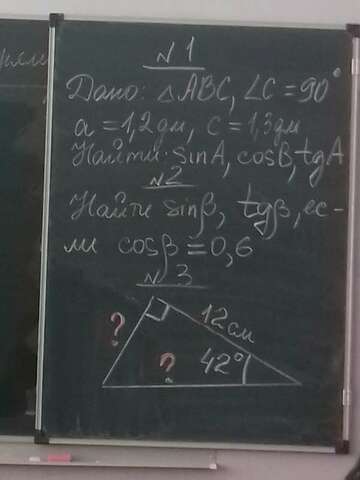 №1
Дано: △ABC, ∠C = 90°
a = 1,2 дм, c = 1,3 дм
Найти: sin A, cos B, tg A
№2
Найти sin β, tg β, ес-
ли cos β = 0,6
№3
12 см
?
? 42°